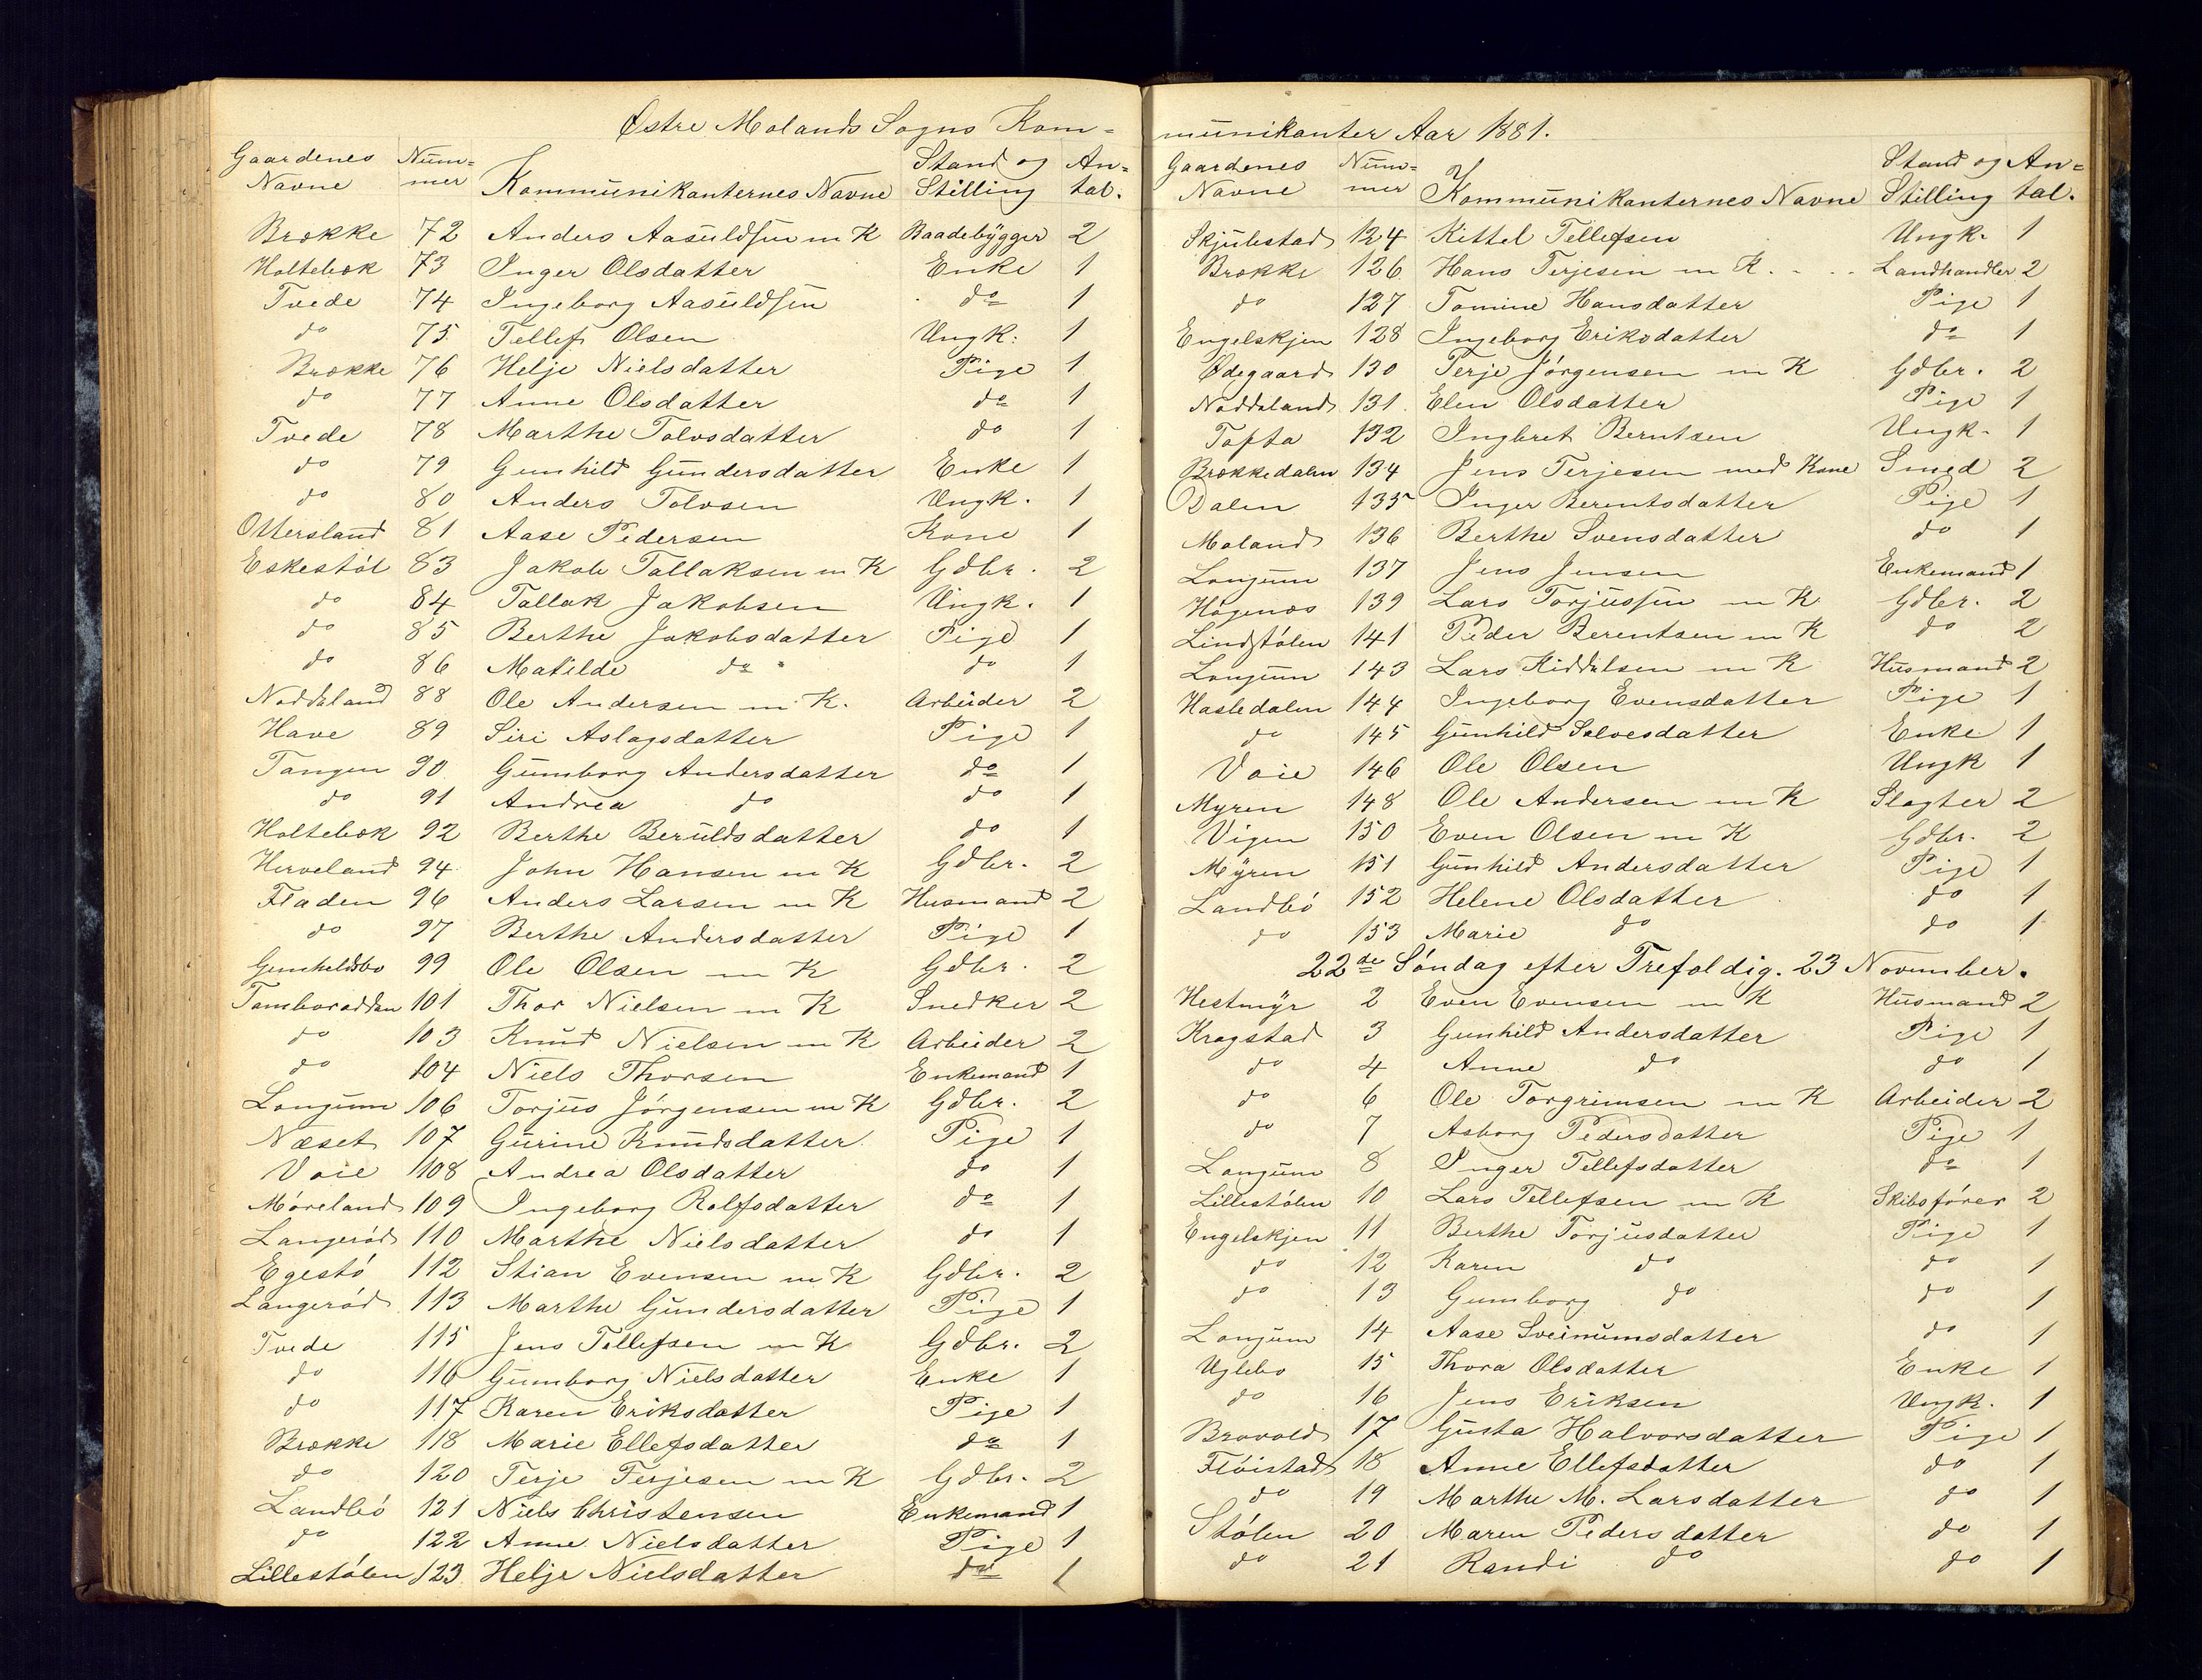 Østre Molands Sogns Kom=
Gaardenes Navne Num=mer Kommunikanternes Navne Stand og Stilling An=tal.
Brække 72 Anders Aasuldsen m K Baadebygger 2
Holtebæk 73 Inger Olsdatter Enke 1
Tvede 74 Ingeborg Aasuldsen do 1
do 75 Tellef Olsen Ungk. 1
Brække 76 Helje Nielsdatter Pige 1
do 77 Anne Olsdatter do 1
Tvede 78 Marthe Tolvsdatter do 1
do 79 Gunhild Gundersdatter Enke 1
do 80 Anders Tolvsen Ungk. 1
Ottersland 81 Aase Pedersen Kone 1
Eskestøl 83 Jakob Tallaksen m K Gdbr. 2
do 84 Tallak Jakobsen Ungk. 1
do 85 Berthe Jakobsdatter Pige 1
do 86 Matilde do do 1
Noddeland 88 Ole Andersen m K. Arbeider 2
Have 89 Siri Aslagsdatter Pige 1
Tangen 90 Gumborg Andersdatter do 1
do 91 Andrea do do 1
Holtebæk 92 Berthe Beruldsdatter do 1
Herveland 94 John Hansen m K Gdbr. 2
Fladen 96 Anders Larsen m K Husmand 2
do 97 Berthe Andersdatter Pige 1
Gunheldsbo 99 Ole Olsen m K Gdbr. 2
Tamborodden 101 Thor Nielsen m K Snedker 2
do 103 Knud Nielsen m K Arbeider 2
do 104 Niels Thorsen Enkemand 1
Longum 106 Torjus Jørgensen m K Gdbr. 2
Næset 107 Gurine Knudsdatter Pige 1
Voie 108 Andrea Olsdatter do 1
Møreland 109 Ingeborg Rolfsdatter do 1
Langerød 110 Marthe Nielsdatter do 1
Egestø 112 Stian Evensen m K Gdbr. 2
Langerød 113 Marthe Gundersdatter Pige 1
Tvede 115 Jens Tellefsen m K Gdbr. 2
do 116 Gumborg Nielsdatter Enke 1
do 117 Karen Eriksdatter Pige 1
Brække 118 Marie Ellefsdatter do 1
do 120 Terje Terjesen m K Gdbr. 2
Landbø 121 Niels Christensen Enkemand 1
do 122 Anne Nielsdatter Pige 1
Lillestølen 123 Helje Nielsdatter do 1
munikanter Aar 1881.
Gaardenes Navne Num=mer Kommunikanternes Navne Stand og Stilling An=tal.
Skjulestad 124 Kittel Tellefsen Ungk. 1
Brække 126 Hans Terjesen m K. Landhandler 2
do 127 Tomine Hansdatter Pige 1
Engelskjen 128 Ingeborg Eriksdatter do 1
Ødegaard 130 Terje Jørgensen m K Gdbr. 2
Noddeland 131 Elen Olsdatter Pige 1
Tofta 132 Ingbret Berntsen Ungk. 1
Brækkedalen 134 Jens Terjesen med Kone Smed 2
Dalen 135 Inger Berentsdatter Pige 1
Moland 136 Berthe Svensdatter do 1
Longum 137 Jens Jensen Enkemand 1
Høgenæs 139 Lars Torjussen m K Gdbr. 2
Lindstølen 141 Peder Berentsen m K do 2
Longum 143 Lars Kiddelsen m K Husmand 2
Hasledalen 144 Ingeborg Evensdatter Pige 1
do 145 Gunhild Solvesdatter Enke 1
Voie 146 Ole Olsen Ungk 1
Myren 148 Ole Andersen m K Slagter 2
Vigen 150 Even Olsen m K Gdbr. 2
Myren 151 Gunhild Andersdatter Pige 1
Landbø 152 Helene Olsdatter do 1
do 153 Marie do do 1
22de Søndag efter Trefoldig. 23 November.
Hestmyr 2 Even Evensen m K Husmand 2
Kragstad 3 Gunhild Andersdatter Pige 1
do 4 Anne do do 1
do 6 Ole Torgrimsen m K Arbeider 2
do 7 Asborg Pedersdatter Pige 1
Longum 8 Inger Tellefsdatter do 1
Lillestølen 10 Lars Tellefsen m K Skibsfører 2
Engelskjen 11 Berthe Torjusdatter Pige 1
do 12 Karen do do 1
do 13 Gumborg do do 1
Longum 14 Aase Sveinumsdatter do 1
Uglebo 15 Thora Olsdatter Enke 1
do 16 Jens Eriksen Ungk. 1
Brovold 17 Gusta Halvorsdatter Pige 1
Fløistad 18 Anne Ellefsdatter do 1
do 19 Marthe M. Larsdatter do 1
Stølen 20 Maren Pedersdatter do 1
do 21 Randi do do 1